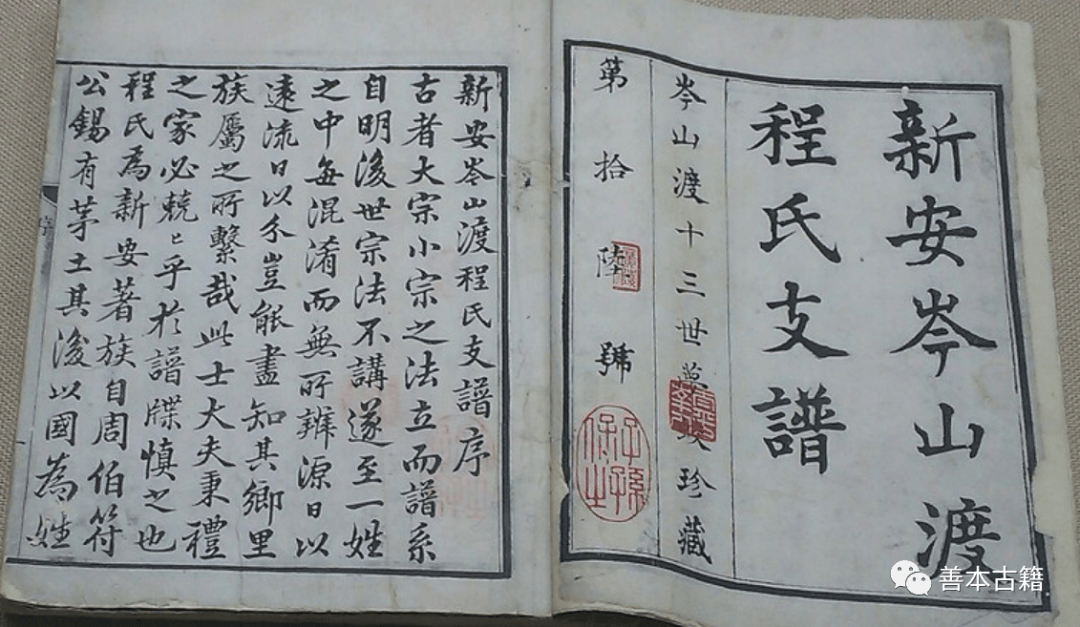 新安岑山渡
程氏支譜
岑山渡十三世珍藏
第拾陸號
子孫保之
新安岑山渡程氏支譜序
古者大宗小宗之法立而譜系
自明後世宗法不講遂至一姓
之中每混淆而無所辨源日以
遠流日以分豈能盡知其鄉里
族屬之所繫哉此士大夫秉禮
之家必兢〻乎於譜牒慎之也
程氏為新安著族自周伯符
公錫有茅土其後以國為姓
善本古籍